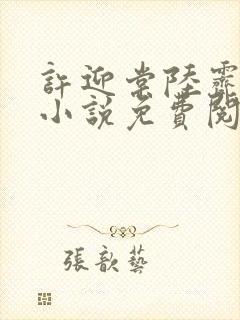 許迎常陸霽
小說免費閱
張歆藝